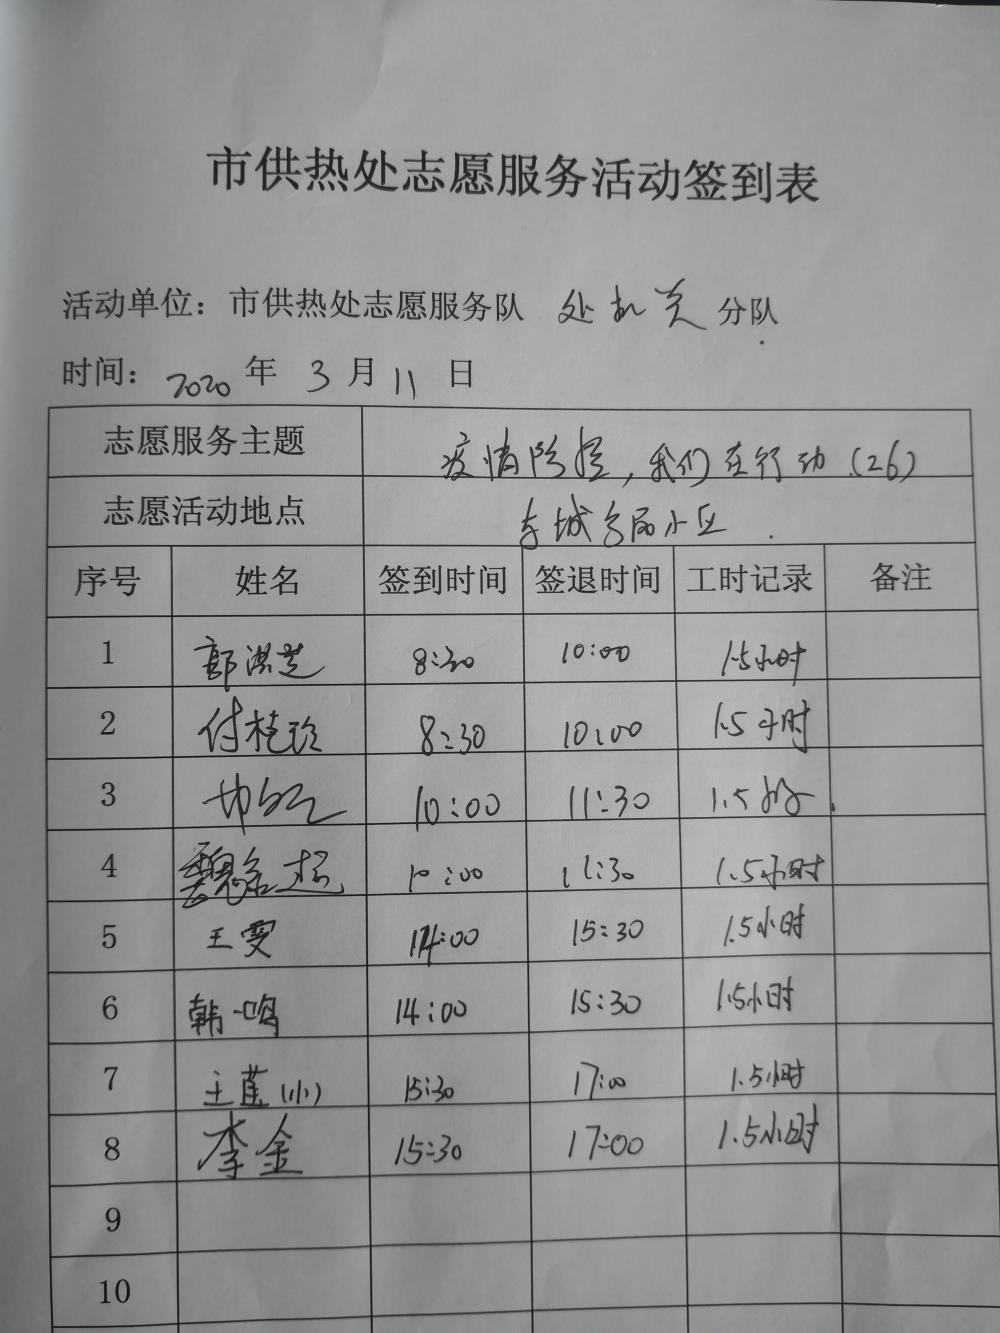 市供热处志愿服务活动签到表
活动单位：市供热处志愿服务队 处机关 分队
时间：2020 年 3 月 11 日
志愿服务主题 疫情防控，我们在行动（26）
志愿活动地点 东城名品小区
序号 姓名 签到时间 签退时间 工时记录 备注
1 郭洪芝 8:30 10:00 1.5小时
2 付桂珍 8:30 10:00 1.5小时
3 10:00 11:30 1.5小时
4 魏 10:00 11:30 1.5小时
5 王雯 14:00 15:30 1.5小时
6 韩一鸣 14:00 15:30 1.5小时
7 王莲（小） 15:30 17:00 1.5小时
8 李金 15:30 17:00 1.5小时
9
10